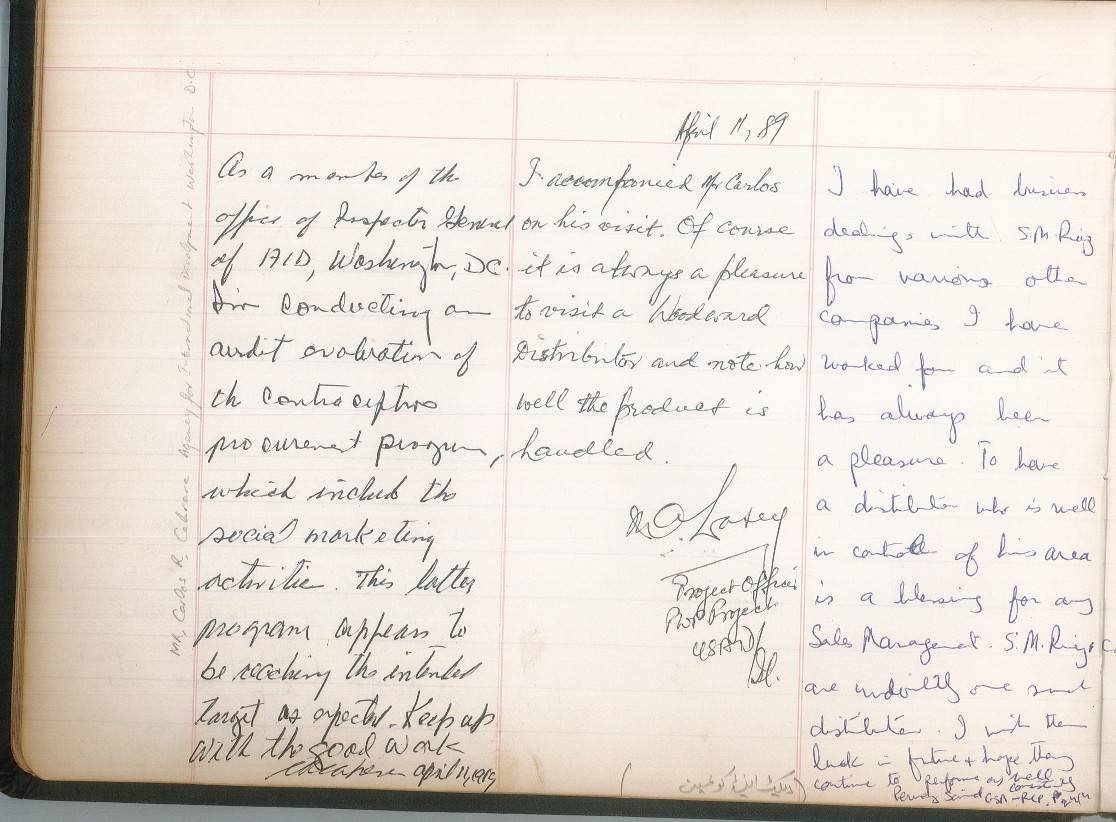 MR. Carlos R. Cabrera Agency for International Development Washington D.C.
As a member of the
office of Inspector General
of AID, Washington, DC.
I'm conducting an
audit evaluation of
th contraceptive
procurement program,
which includ the
social marketing
activitie. This latter
program appears to
be reaching the intended
target as expected. Keep up
with the good work
April 11, 1989
April 11, 89
I accompanied Mr Carlos
on his visit. Of course
it is always a pleasure
to visit a Woodward
Distributor and note how
well the product is
handled.
Project Officer
PWP Project
USAID/
I have had business
dealings with S.M. Riaz
from various other
companies I have
worked for and it
has always been
a pleasure. To have
a distributer who is well
in control of his area
is a blessing for any
Sales Management. S.M. Riaz & Co
are one such
distributer. I wish them
luck in future & hope they
continue to performe as well
consistently